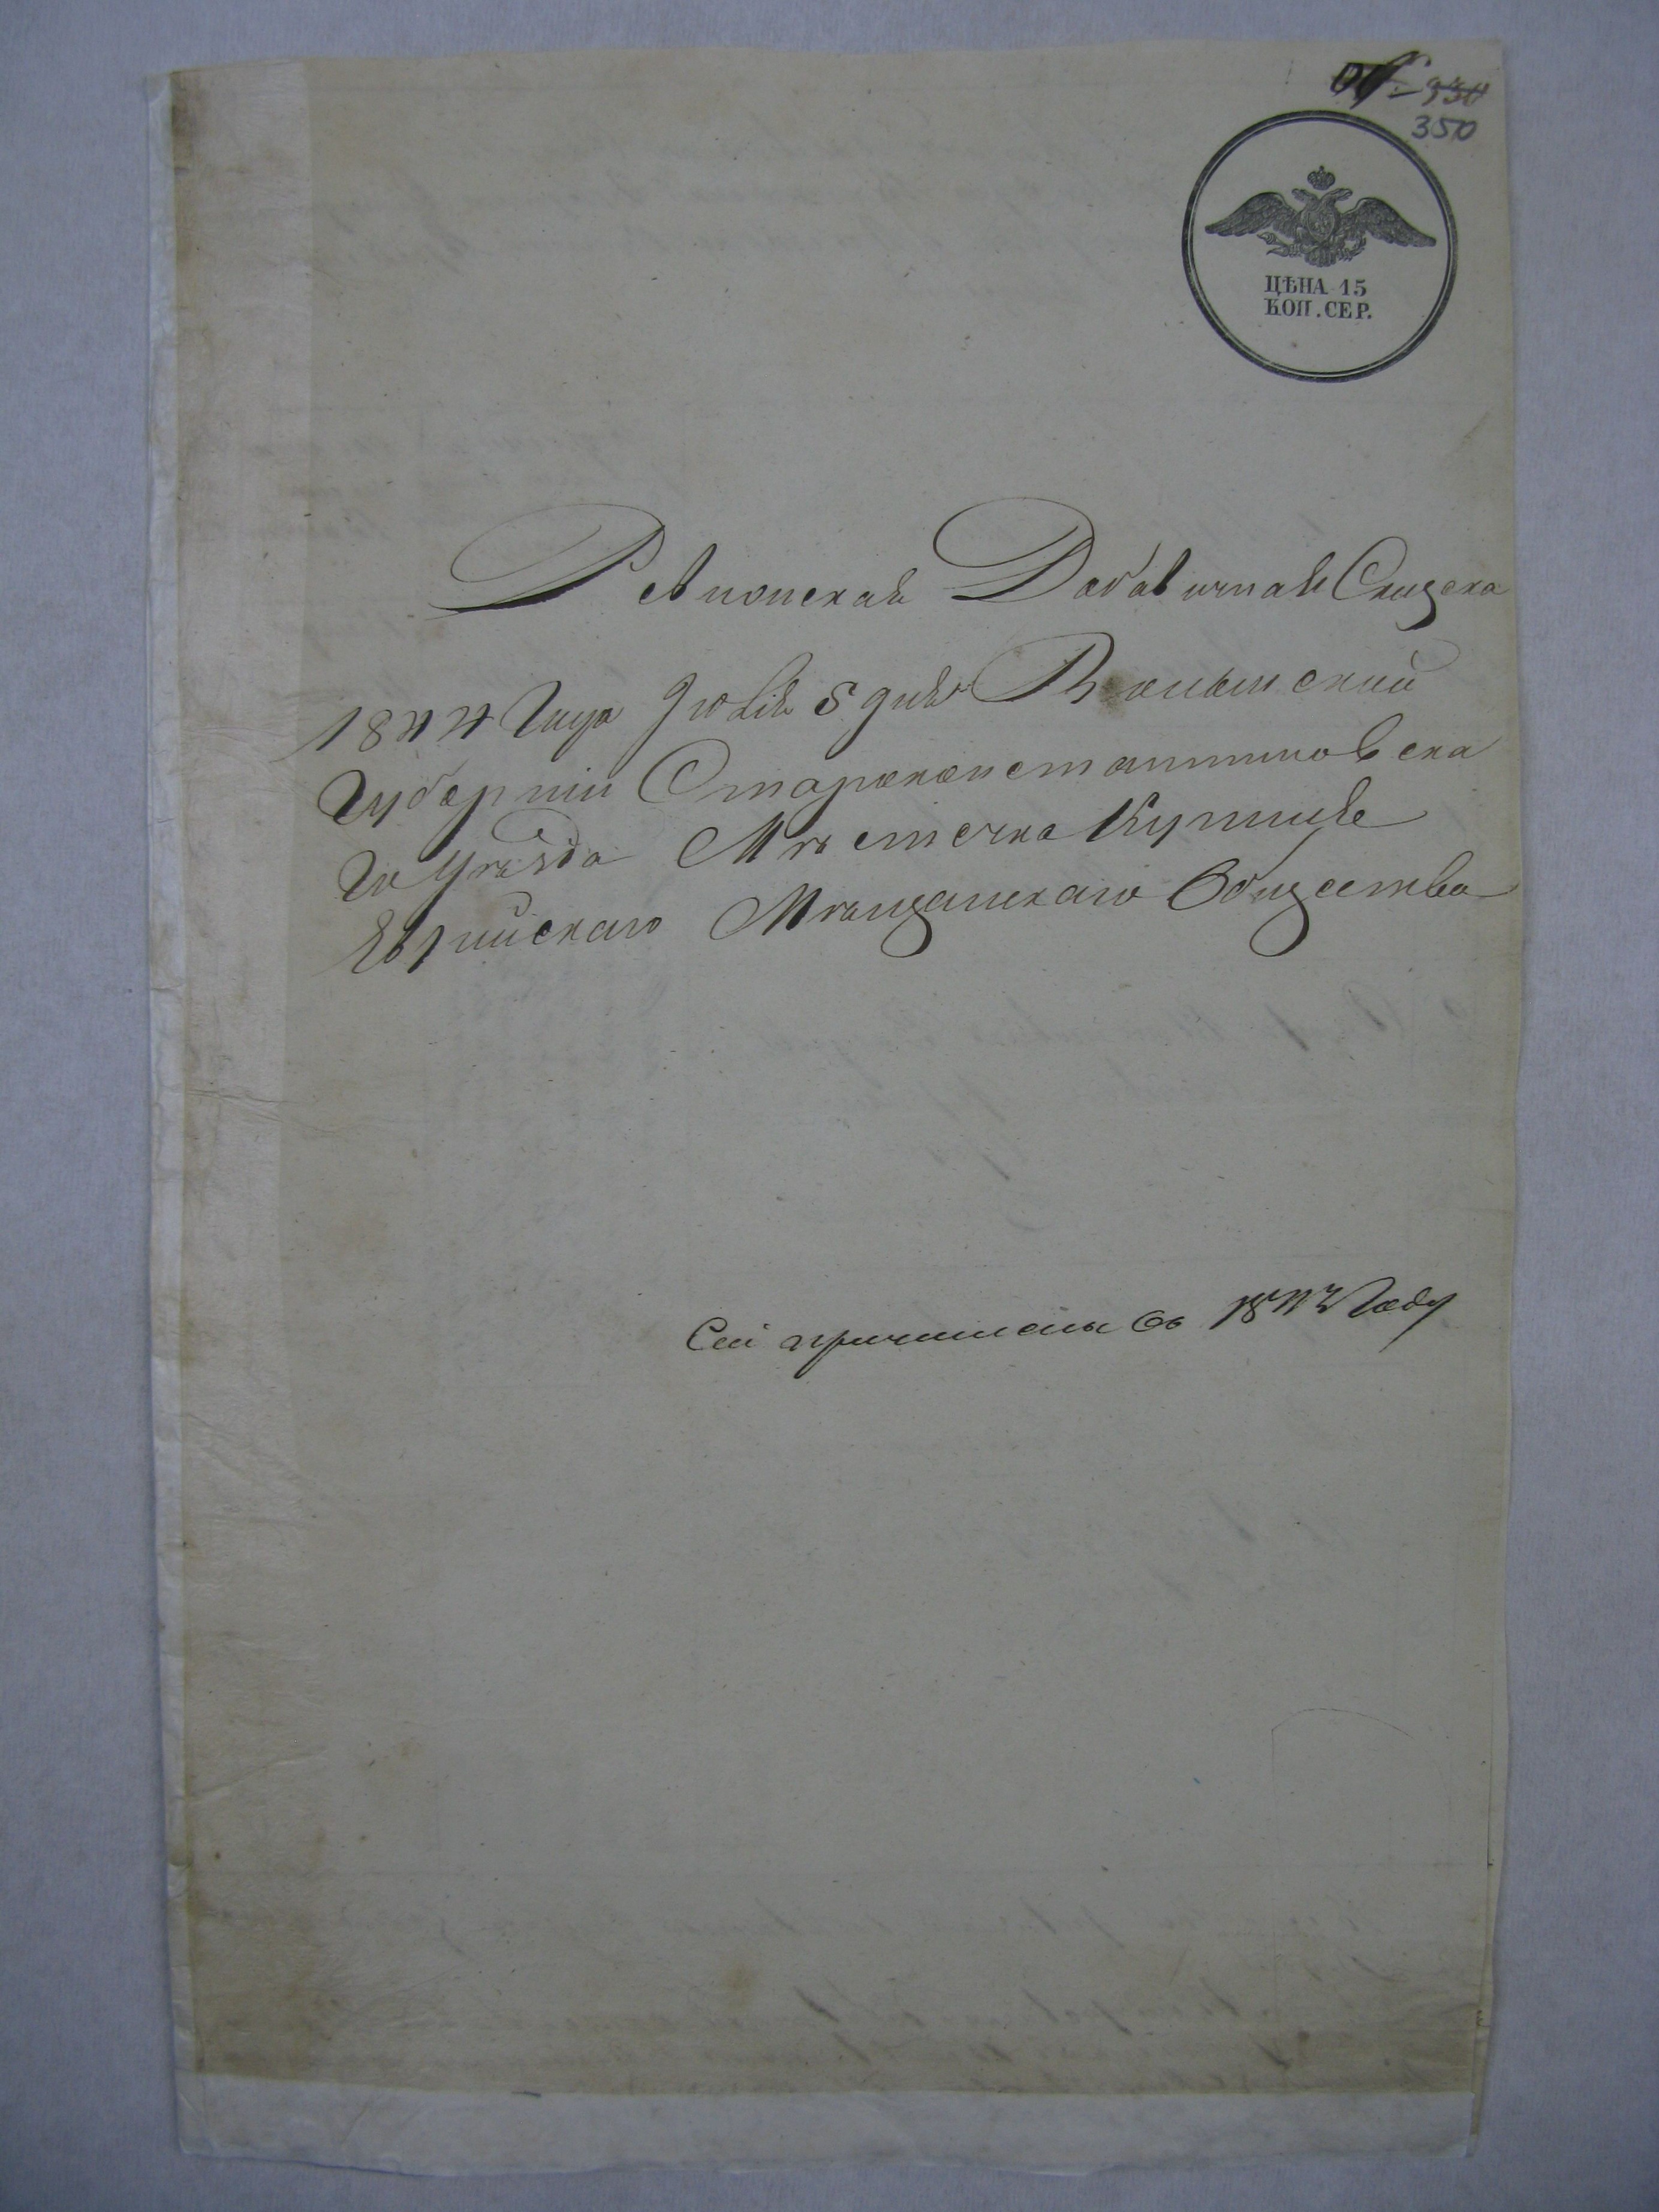 350
ЦѢНА 15
КОП. СЕР.
Ревизская Добавочная Сказка
1844 Года Іюлія 5 дня Волынский
Губерніи Староконстантиновска
го Уѣзда Мѣстечка Купиля
Еврийскаго Мѣщанскаго Общества
Сии причислены съ Году